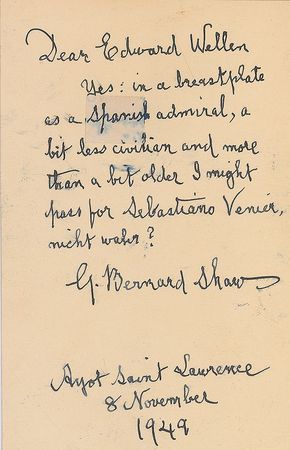 Dear Edward Wellen
Yes: in a breastplate
as a Spanish admiral, a
bit less civilian and more
than a bit older I might
pass for Sebastiano Venier,
nicht wahr?
G. Bernard Shaw
Ayot Saint Lawrence
8 November
1949